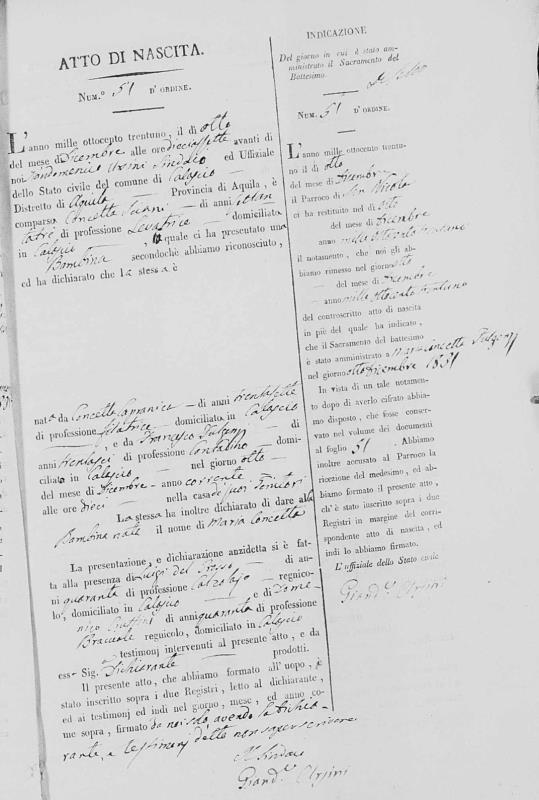 ATTO DI NASCITA.
NUM.º 51 D'ORDINE.
L'anno mille ottocento trentuno, il dì otto
del mese di Dicembre alle ore diecissette avanti di
noi Giandomenico Orsini Sindaco ed Uffiziale
dello Stato civile del comune di Calascio
Distretto di Aquila — Provincia di Aquila, è
comparsa Concetta — di anni settan
tatre di professione Levatrice — domiciliata
in Calascio, la quale ci ha presentato una
Bambina, secondochè abbiamo riconosciuto,
ed ha dichiarato che la stessa è
nata da Concetta — di anni trentasette
di professione filatrice — domiciliata in Calascio
—, e da Francesco — di
anni trentasei di professione Contadino — domi-
ciliato in Calascio — nel giorno otto —
del mese di Dicembre — anno corrente
alle ore dieci — nella casa de' suoi Genitori
La stessa ha inoltre dichiarato di dare alla
Bambina nata il nome di Maria Concetta
La presentazione, e dichiarazione anzidetta si è fat-
ta alla presenza di Luigi del — di an-
ni quaranta di professione Calzolajo — regnico-
lo, domiciliato in Calascio — e di Dome-
nico — di anni quaranta di professione
Bracciale regnicolo, domiciliato in Calascio
— testimonj intervenuti al presente atto, e da
essa Sig.ª Dichiarante — prodotti.
Il presente atto, che abbiamo formato all'uopo, è
stato inscritto sopra i due Registri, letto al dichiarante,
ed ai testimonj ed indi nel giorno, mese, ed anno co-
me sopra, firmato da noi solo, avendo la dichia-
rante, e testimonj detto non saper scrivere
Il Sindaco
Giand.co Orsini
INDICAZIONE
Del giorno in cui è stato am-
ministrato il Sacramento del
Battesimo.
NUM. 51 D'ORDINE.
L'anno mille ottocento trentu-
no il dì otto
del mese di Dicembre
il Parroco di San Nicola
ci ha restituito nel dì otto
del mese di Dicembre
anno mille ottocento trentuno
il notamento, che noi gli ab-
biamo rimesso nel giorno otto
— del mese di Dicembre
— anno mille ottocento trentuno
del controscritto atto di nascita
in piè del quale ha indicato,
che il Sacramento del battesimo
è stato amministrato a Maria Concetta
nel giorno otto Dicembre 1831
In vista di un tale notamen-
to dopo di averlo cifrato abbia-
mo disposto, che fosse conser-
vato nel volume dei documenti
al foglio 51. Abbiamo
inoltre accusato al Parroco la
ricezione del medesimo, ed ab-
biamo formato il presente atto,
ch'è stato inscritto sopra i due
Registri in margine del corri-
spondente atto di nascita, ed
indi lo abbiamo firmato.
L'uffiziale dello Stato civile
Giand.co Orsini